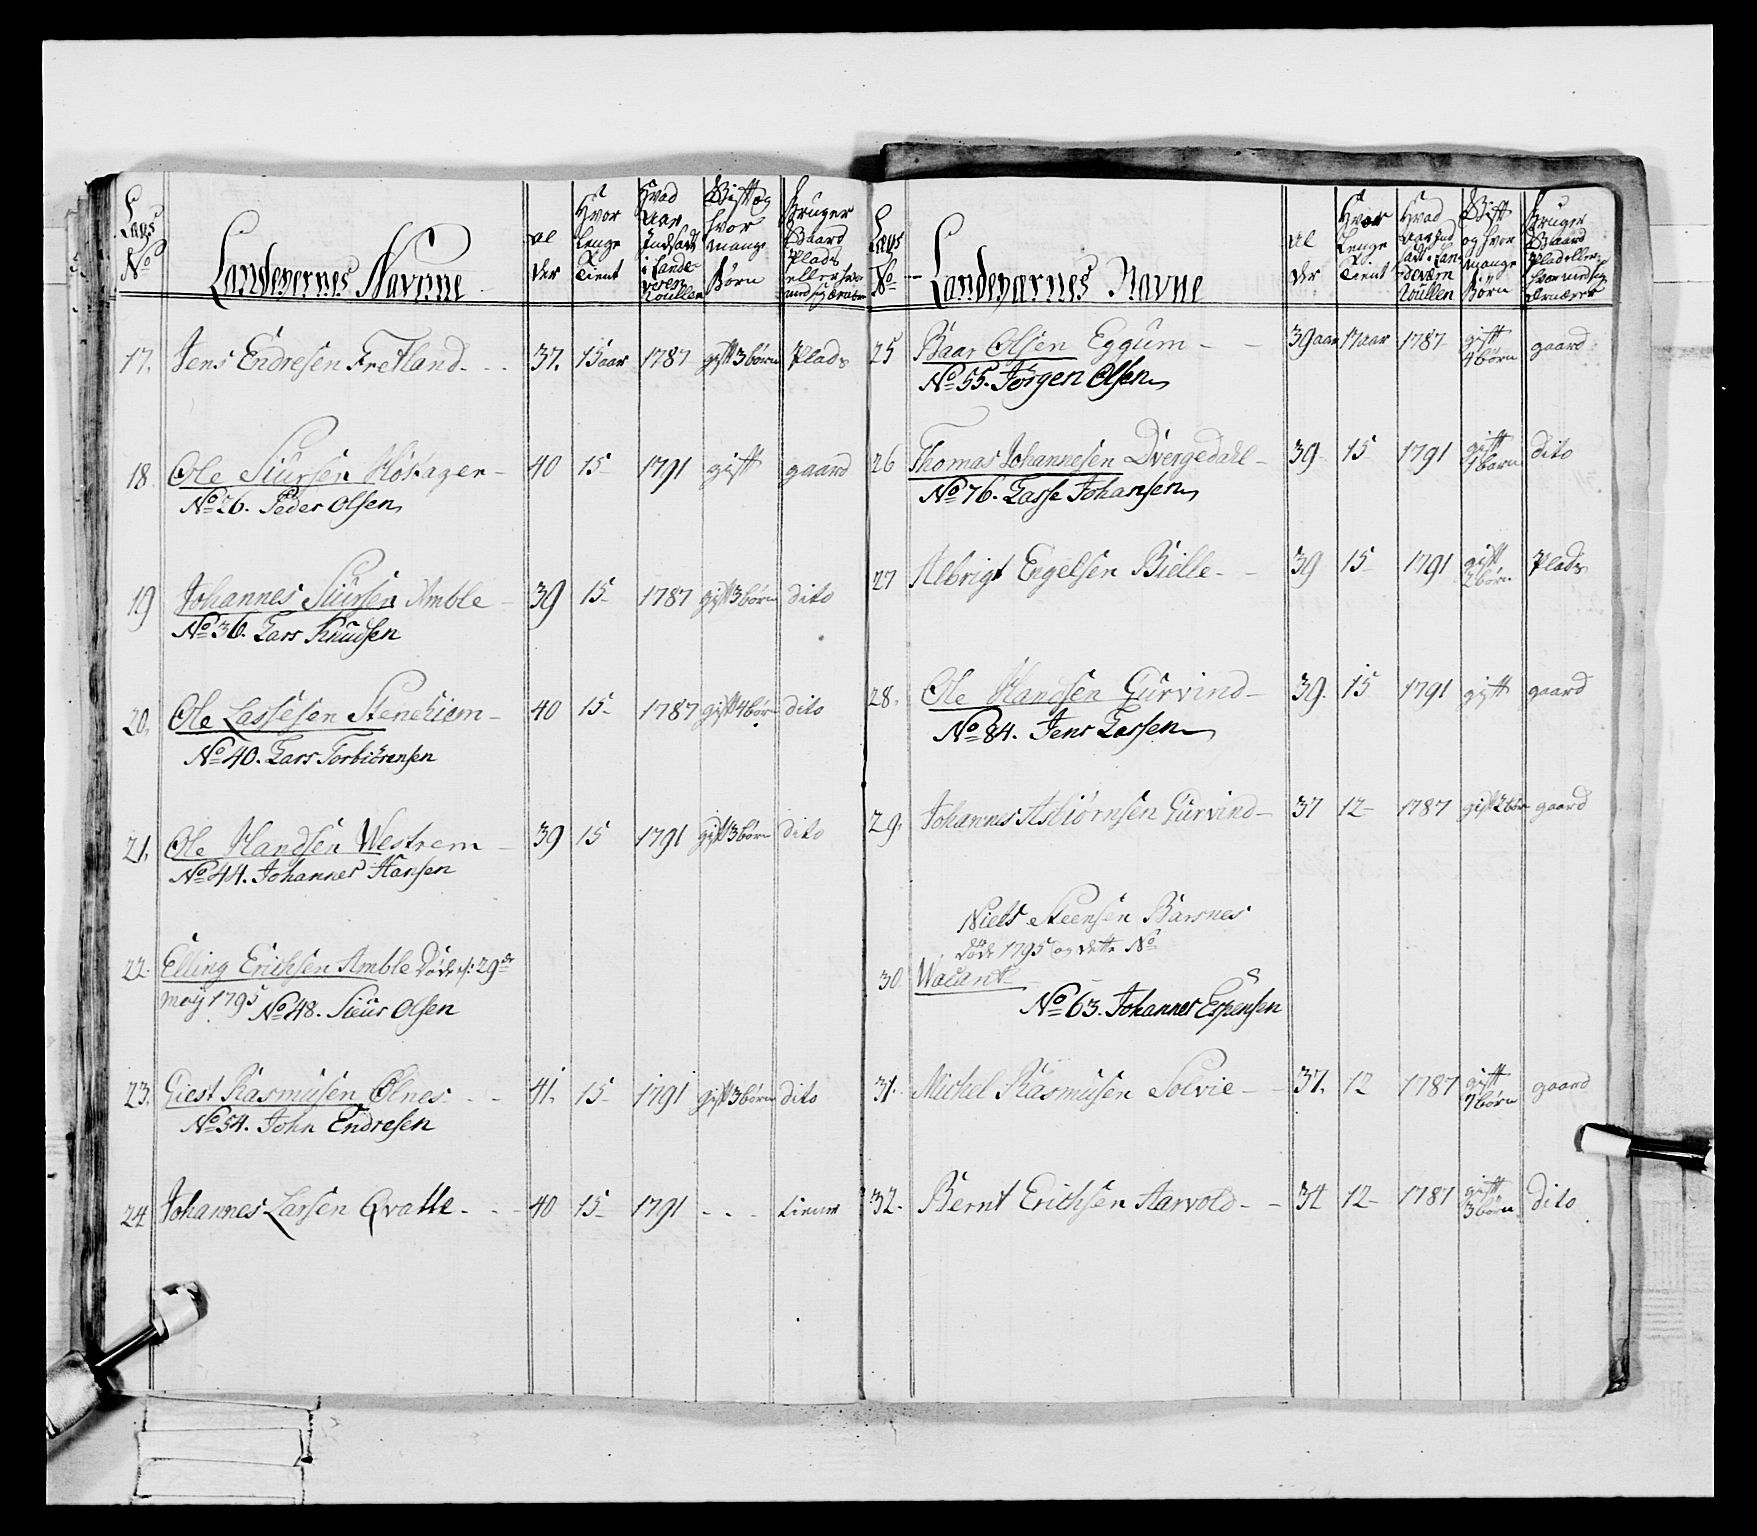 Laugs No | Landevernes Navnne | Alder | Hvor Lenge Tient | Hvad Aar Indsadt i Landeveren Roullen | Gift og hvor mange Børn | Bruger Gaard Plads eller hvormed sig Ernærer
17. Jens Endresen Fretland 37. 15 aar 1787 gift 3 børn Plads
18. Ole Siursen Høkager 40 15 1791 gift gaard
No 26. Peder Olsen
19 Johannes Siursen Amble 39 15 1787 gift 3 børn dito
No 36. Lars Knudsen
20. Ole Lassesen Stenehiem 40 15 1787 gift 4 børn dito
No 40. Lars Torbiørensen
21. Ole Handsen Westrem 39 15 1791 gift 3 børn dito
No 44. Johannes Hansen
22. Elling Erichsen Amble Døde d: 29de
may 1795 No 48. Siur Olsen
23. Giest Rasmusen Ølnes 41. 15 1791 gift 3 børn dito
No 54. John Endresen
24 Johannes Larsen Qvatle 40 15 1791 - - - tiener
Laugs No | Landevarnes Navne | Alder | Hvor Lenge Tient | Hvad Aar Indsadt i Landeværn Roullen | Gift og hvor mange Børn | Bruger Gaard Plads eller hvormed sig Ernærer
25 Baar Olsen Eggum 39 aar 17 aar 1787 gift 4 børn gaard
No 55. Jørgen Olsen
26 Thomas Johannesen Dvergedahl 39 15 1791 gift 1 barn dito
No 76. Lasse Johansen
27 Albrigt Engelsen Bielle 39 15 1791 gift 2 børn Plads
28. Ole Handsen Gurvind 39. 15 1791 gift gaard
No 84. Jens Lassen
29. Johannes Asbiørnsen Gurvind 37 12 1787 gift 2 børn gaard
Niels Steensen Barsnes
døde 1795 og dette No
30. Wacant
No 63. Johannes Espensen
31. Michel Rasmusen Solvie 37. 12 1787 gift 7 børn gaard
32. Bernt Erichsen Aarvold 34 12 1787 gift 3 børn dito